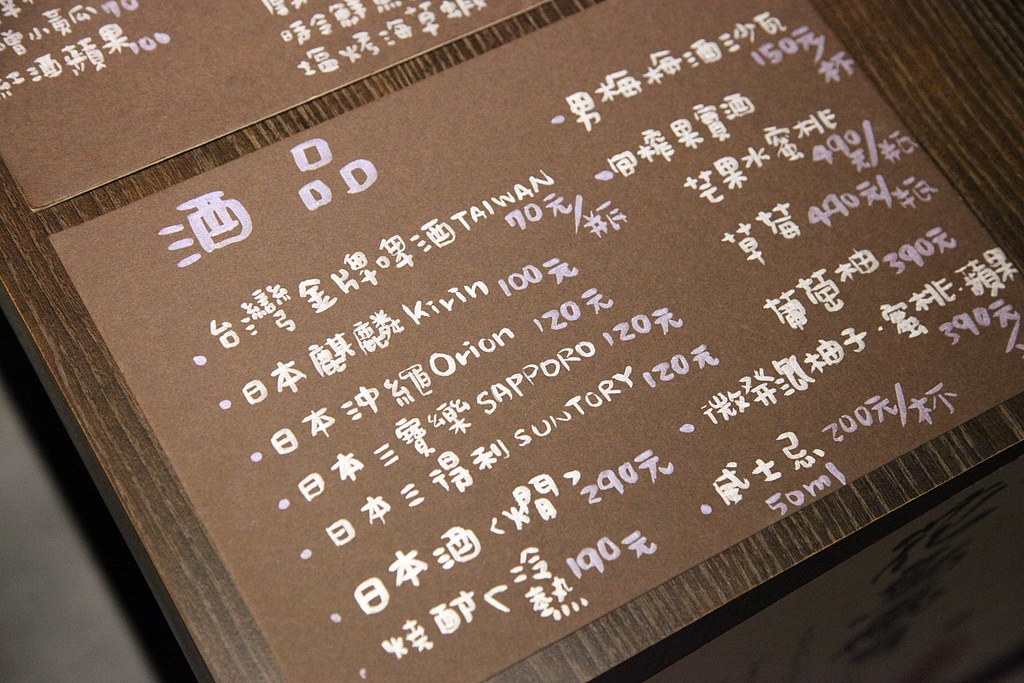 小黃瓜 70
紅酒蘋果 100
塩烤海草蝦
酒品
• 台灣金牌啤酒TAIWAN 70元/杯
• 日本麒麟Kirin 100元
• 日本沖繩Orion 120元
• 日本三寶樂SAPPORO 120元
• 日本三得利SUNTORY 120元
• 日本酒〈燗〉290元
• 燒酎〈冷 熱 190元
• 男梅梅酒沙瓦 150元/杯
• 現榨果實酒
芒果水蜜桃 490元/瓶
草莓 490元/瓶
葡萄柚 390元
• 微發泡柚子.蜜桃.蘋果 390元/
• 威士忌 200元/杯
50ml